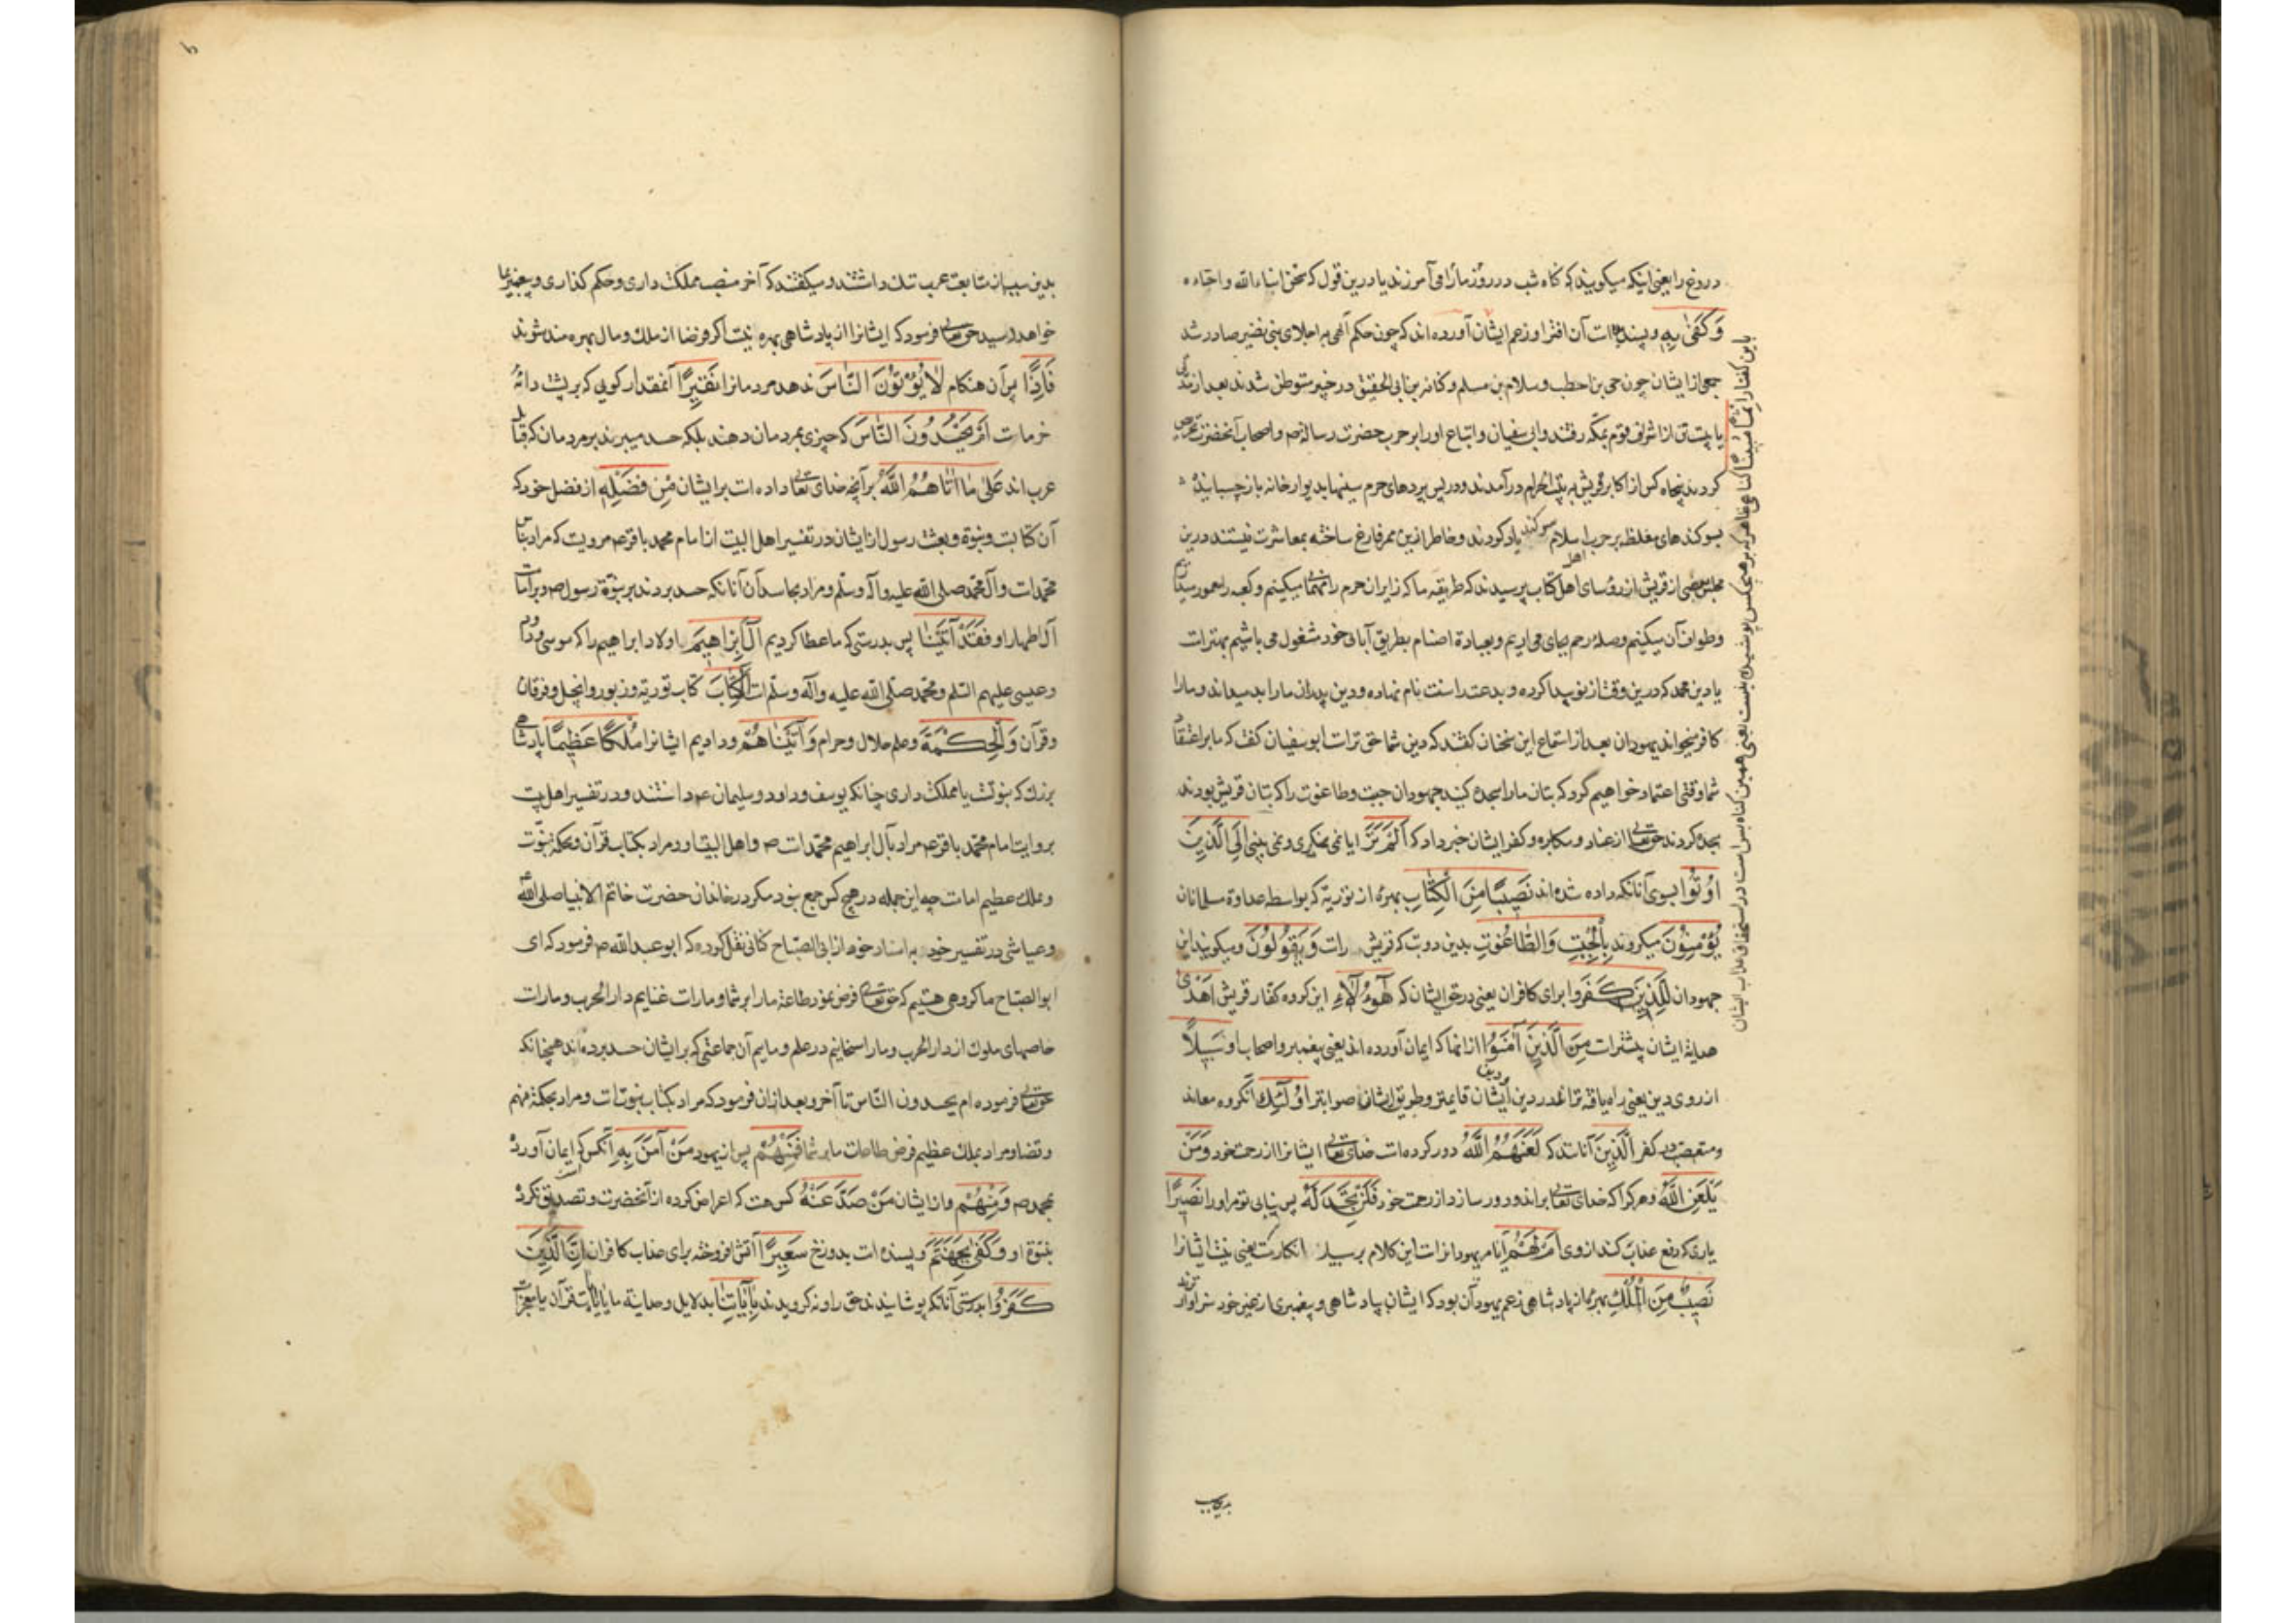 دروغ را یعنی اینکه میکویند که کناه شب در روز ما را می آمرزند یا درین قول که نحن ابناء الله و احباءه
وَكَفىٰ بِهِ و پسنده است آن افترا و زعم ایشان آورده اند که چون حکم الهی بر اجلای بنی نضیر صادر شد
جمعی از ایشان چون حی بن اخطب و سلام بن مسلم و کنانه بن ابی الحقیق در خیبر متوطن شدند بعد از
با بیست تن از اشراف قوم بمکه رفتند و ابی سفیان و اتباع او را بر حرب حضرت رساله ص و اصحاب آنحضرت
کردند پنجاه کس از اکابر قریش به بیت الحرام در آمدند و در پس پردهای حرم سینها بدیوار خانه باز چسبانیده
بسوکندهای مغلظ بر حرب اسلام سوکند یاد کردند و خاطر ازین ممر فارغ ساخته بمعاشرت نشستند درین
مجلس بعضی از قریش از رؤسای اهل کتاب پرسیدند که طریقه ما که زایران حرم را میکنیم و کعبه را معمور
و طواف آن میکنیم و صله رحم بجای می اریم و بعبادة اصنام بطریق آبائی خود مشغول می باشیم بهتر است
یا دین محمد که درین وقت از نو پیدا کرده و بدعت را سنت نام نهاده و دین پدران ما را بد میداند و ما را
کافر میخواند یهودان بعد از استماع این سخنان کفتند که دین شما حق تر است ابو سفیان کفت که ما بر اعتقاد
شما وقتی اعتماد خواهیم کرد که بتان ما را سجده کنید جهودان جبت و طاغوت را که بتان قریش بودند
سجده کردند حق تعالی از عناد و مکابره و کفر ایشان خبر داد که اَلَمْ تَرَ ایا نمی نکری و نمی بینی اِلَى الَّذِينَ
اُوتُوا بسوی آنانکه داده شده اند نَصِيبًا مِنَ الْكِتٰابِ بهره از توریة که بواسطه عداوة مسلمانان
يُؤْمِنُونَ میکروند بِالْجِبْتِ وَالطّٰاغُوتِ بدین دو بت که قریش راست وَيَقُولُونَ و میکویند این
جهودان لِلَّذِينَ كَفَرُوا برای کافران یعنی در حق ایشان که هٰؤُلٰاءِ این کروه کفار قریش اَهْدىٰ
هدایة ایشان بیشتر است مِنَ الَّذِينَ آمَنُوا از انها که ایمان آورده اند یعنی پیغمبر و اصحاب او سَبِيلًا
از روی دین یعنی راه یافته تراند در دین و دین ایشان قایمتر و طریق ایشان صوابتر اُولٰئِكَ آنکروه معاند
و متعصب در کفر الَّذِينَ آنانند که لَعَنَهُمُ اللَّهُ دور کرده است خدای تعالی ایشانرا از رحمت خود وَمَنْ
يَلْعَنِ اللَّهُ و هر کرا که خدای تعالی براند و دور سازد از رحمت خود فَلَنْ تَجِدَ لَهُ پس نیابی تو مر او را نَصِيرًا
یاری که دفع عذاب کند از وی اَمْ لَهُمْ آیا مر یهودانراست این کلام بر سبیل انکارست یعنی نیست ایشانرا
نَصِيبٌ مِنَ الْمُلْكِ بهره از پادشاهی زعم یهود آن بود که ایشان بپادشاهی و پیغمبری از غیر خود سزاوار ترند
با این کفتار اِثْمًا مُبِينًا کناهی ظاهر که بر هیچکس پوشیده نیست یعنی همین کناه بس است در استحقاق عذاب ایشان
بدین سبب
بدین سبب از متابعت عرب ننک داشتند و میکفتند که آخر منصب مملکت داری و حکم کذاری و پیغمبری بما
خواهد رسید حق تعالی فرمود که ایشانرا از پادشاهی بهره نیست اکر فرضا از ملک و مال بهره مند شوند
فَاِذًا پس آن هنکام لٰا يُؤْتُونَ النّٰاسَ ندهند مردمانرا نَقِيرًا آنمقدار کویی که بر پشت دانه
خرماست اَمْ يَحْسُدُونَ النّٰاسَ که چیزی بمردمان دهند بلکه حسد میبرند بر مردمان که قبایل
عرب اند عَلىٰ مٰا آتٰاهُمُ اللَّهُ بر آنچه خدای تعالی داده است بر ایشان مِنْ فَضْلِهِ از فضل خود که
آن کتابت و نبوة و بعثت رسول از ایشان در تفسیر اهل البیت از امام محمد باقر ع مرویست که مراد بناس
محمد است و آل محمد صلی الله علیه و آله و سلم و مراد بحاسدان آنانکه حسد بردند بر نبوة رسول ص و بر امامت
آل اطهار او فَقَدْ آتَيْنٰا پس بدرستی که ما عطا کردیم آلَ اِبْرٰاهِيمَ اولاد ابراهیم را که موسی و داود
و عیسی علیهم السلم و محمد صلی الله علیه و آله و سلم است الْكِتٰابَ کتاب توریة و زبور و انجیل و فرقان
و قرآن وَالْحِكْمَةَ و علم حلال و حرام وَآتَيْنٰاهُمْ و دادیم ایشانرا مُلْكًا عَظِيمًا پادشاهی
بزرک که نبوتست یا مملکت داری چنانکه یوسف و داود و سلیمان ع داشتند و در تفسیر اهل بیت
بروایت امام محمد باقر ع مراد بآل ابراهیم محمد است ص و اهل البیت او و مراد بکتاب قرآن و حکمه نبوت
و ملک عظیم امامت چه این جمله در هیچ کس جمع نبود مکر در خاندان حضرت خاتم الانبیا صلی الله
و عیاشی در تفسیر خود به اسناد خود از ابی الصباح کنانی نقل کرده که ابو عبد الله ص فرمود که ای
ابو الصباح ما کروهی هستیم که حق تعالی فرض نمود طاعة ما را بر شما و ما راست غنایم دار الحرب و ما راست
خاصهای ملوک از دار الحرب و ما راسخانیم در علم و ماییم آن جماعتی که بر ایشان حسد برده اند همچنانکه
حق تعالی فرموده ام یحسدون النّاس تا آخر و بعد ازان فرمود که مراد بکتاب نبوتست و مراد بحکمة فهم
و قضا و مراد بملک عظیم فرض طاعات ما بر شما فَمِنْهُمْ پس از یهود مَنْ آمَنَ بِهِ آنکس که ایمان آورد
بمحمد ص وَمِنْهُمْ و از ایشان مَنْ صَدَّ عَنْهُ کس هست که اعراض کرده از آنحضرت و تصدیق نکرد
بنبوة او وَكَفىٰ بِجَهَنَّمَ و پسنده است بدوزخ سَعِيرًا آتش افروخته برای عذاب کافران اِنَّ الَّذِينَ
كَفَرُوا بدرستی آنانکه پوشانیدند حق را و نه کرویدند بِآيٰاتِنٰا بدلایل وحدانیة ما یا بآیات قرآن یا معجزات